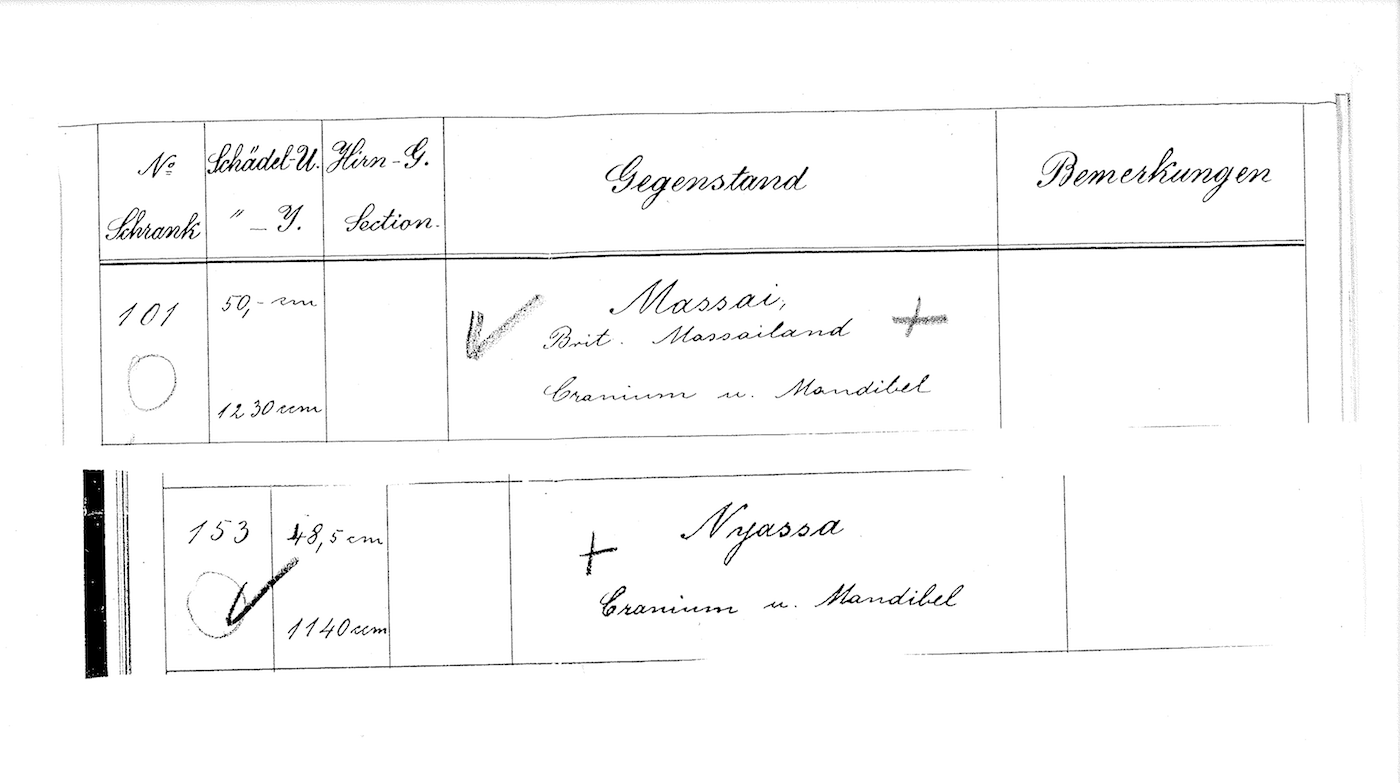 No Schädel-U. Hirn-G. Gegenstand Bemerkungen
Schrank " - Y. Section.
101 50,- cm Massai,
Brit. Massailand
1230 ccm Cranium u. Mandibel
153 48,5 cm Nyassa
1140 ccm Cranium u. Mandibel